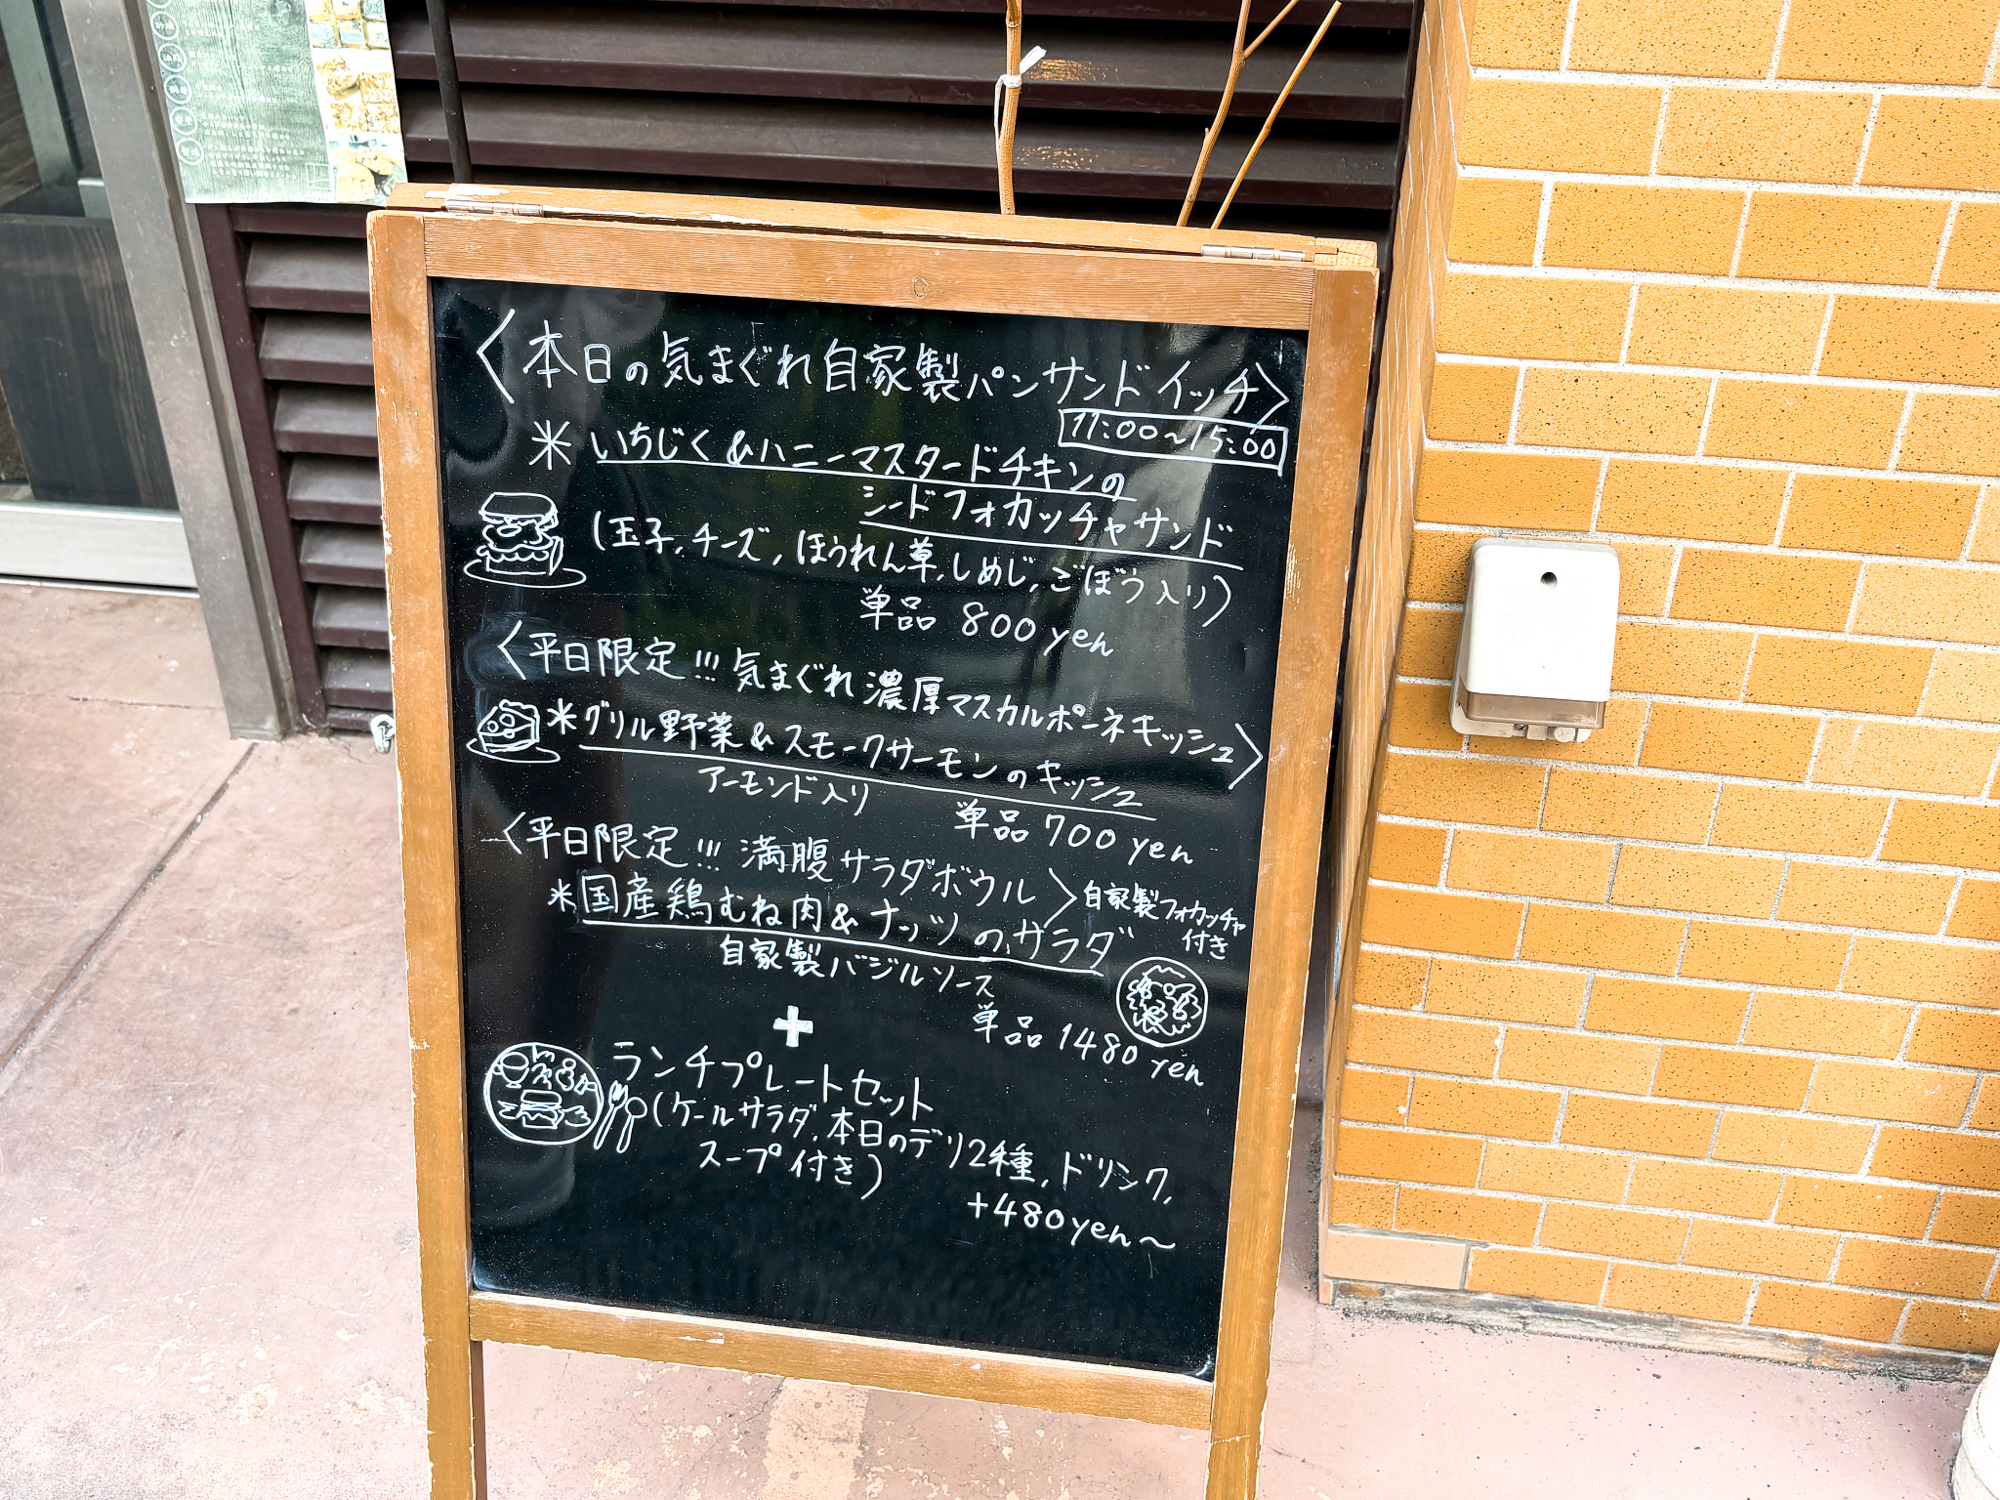 〈本日の気まぐれ自家製パンサンドイッチ〉
11:00~15:00
* いちじく&ハニーマスタードチキンの
シードフォカッチャサンド
(玉子,チーズ,ほうれん草,しめじ,ごぼう入り)
単品 800yen
〈平日限定!!!気まぐれ濃厚マスカルポーネキッシュ〉
*グリル野菜&スモークサーモンのキッシュ
アーモンド入り
単品 700yen
〈平日限定!!!満腹サラダボウル〉自家製フォカッチャ
付き
*国産鶏むね肉&ナッツのサラダ
自家製バジルソース
単品 1480yen
+
ランチプレートセット
(ケールサラダ,本日のデリ2種,ドリンク,
スープ付き)
+480yen~